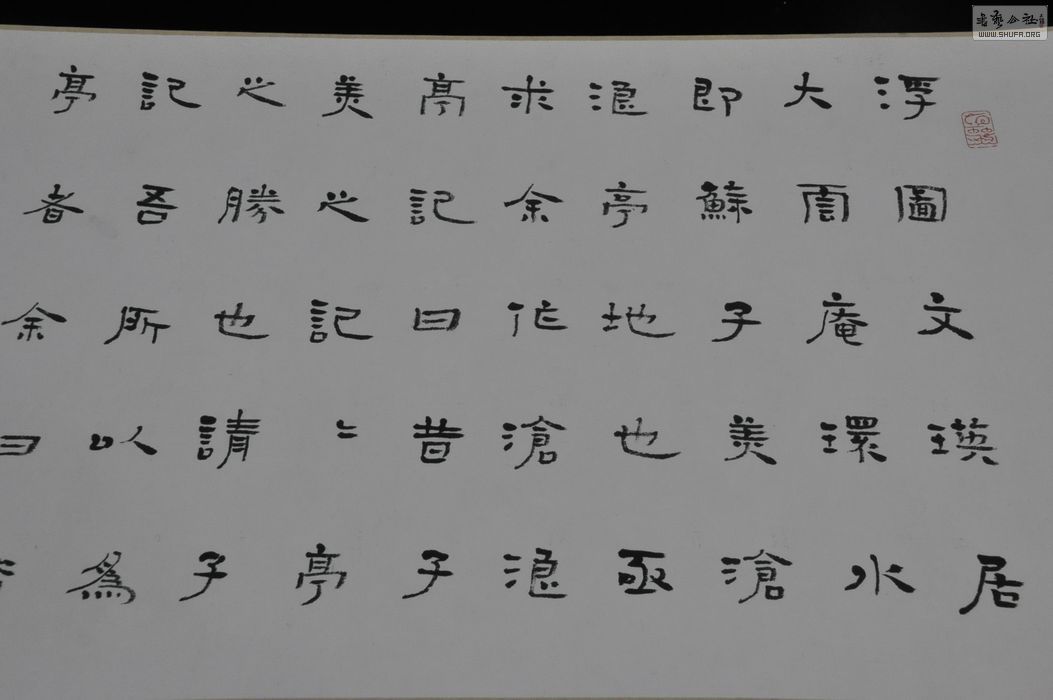 浮圖文瑛居
大雲庵環水
即蘇子美滄
浪亭地也亟
求余作滄浪
亭記曰昔子
美之記〻亭
之勝也請子
記吾所以爲
亭者余曰
書藝公社
WWW.SHUFA.ORG